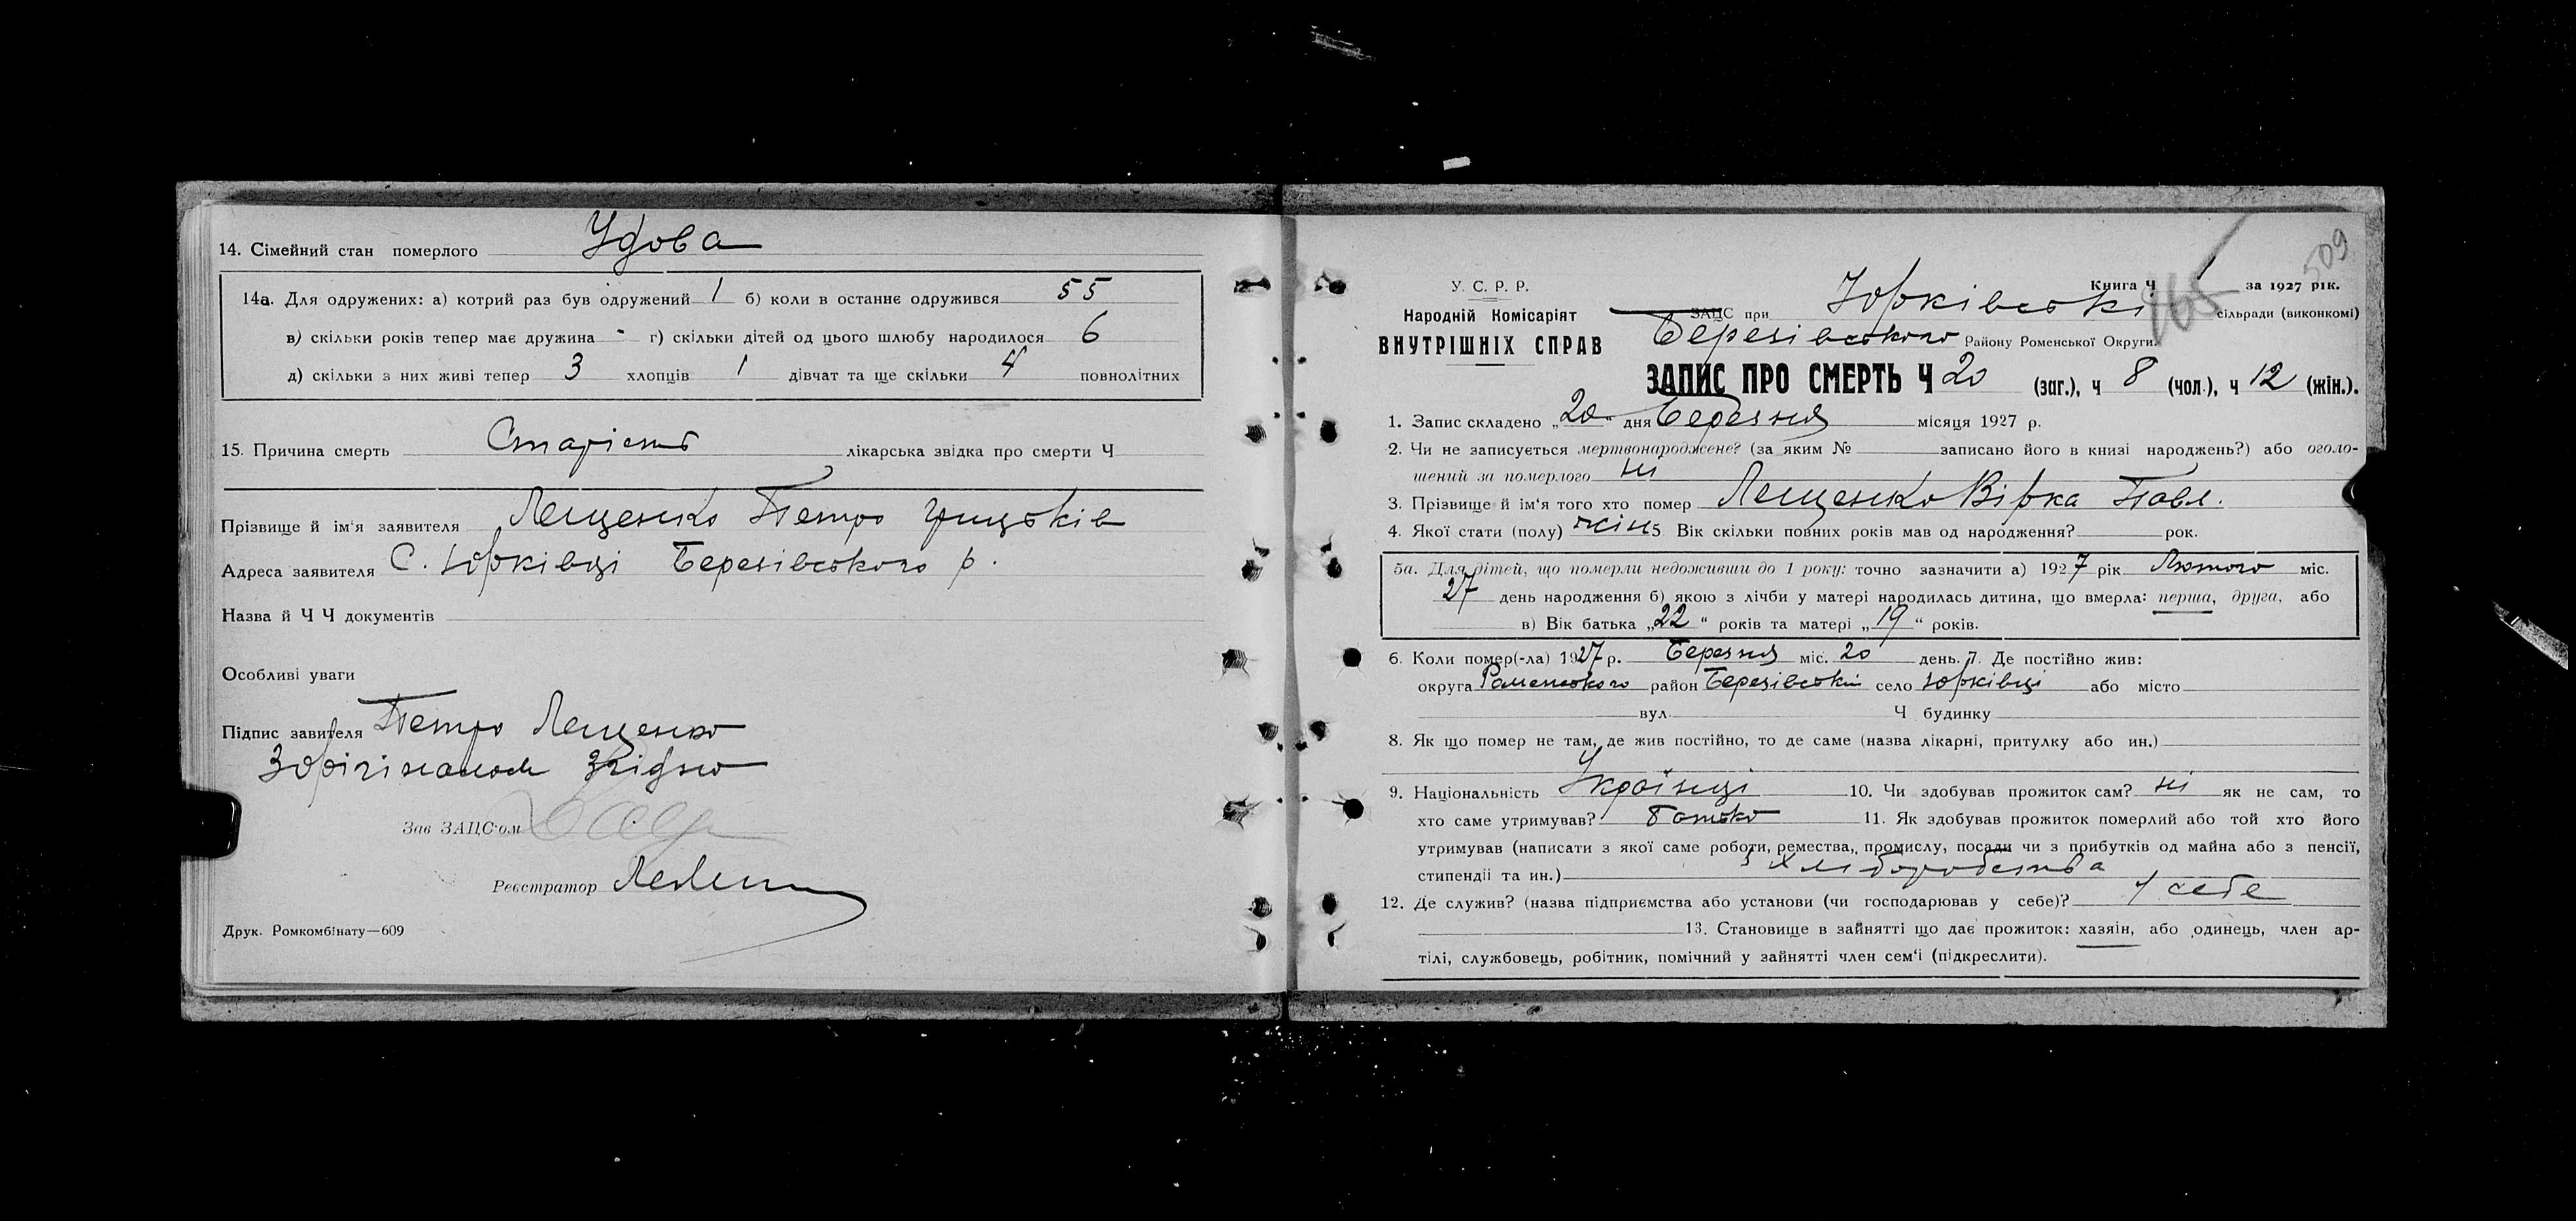 14. Сімейний стан померлого Удова
14а. Для одружених: а) котрий раз був одружений 1 б) коли в останнє одружився 55
в) скільки років тепер має дружина - г) скільки дітей од цього шлюбу народилося 6
д) скільки з них живі тепер 3 хлопців 1 дівчат та ще скільки 4 повнолітних
15. Причина смерть Старість лікарська звідка про смерти Ч
Прізвище й ім'я заявителя Лещенко Петро Грицьків
Адреса заявителя С. Юрківці Березівського р.
Назва й Ч Ч документів
Особливі уваги
Підпис завителя Петро Лещенко
З орігіналом Згідно
Зав ЗАЦС'ом
Реєстратор
Друк. Ромкомбінату—609
509
У. С. Р. Р.
Книга Ч 165 за 1927 рік.
Народній Комісаріят
ВНУТРІШНІХ СПРАВ
ЗАЦС при Юрківські сільради (виконкомі)
Березівського Району Роменської Округи.
ЗАПИС ПРО СМЕРТЬ Ч 20 (заг.), ч 8 (чол.), ч 12 (жін.).
1. Запис складено „20" дня Березня місяця 1927 р.
2. Чи не записується мертвонароджене? (за яким № записано його в книзі народжень?) або оголо-
шений за померлого ні
3. Прізвище й ім'я того хто помер Лещенко Вірка Павл.
4. Якої стати (полу) жін 5 Вік скільки повних років мав од народження? рок.
5а. Для дітей, що померли недоживши до 1 року: точно зазначити а) 1927 рік Лютого міс.
27 день народження б) якою з лічби у матері народилась дитина, що вмерла: перша, друга, або
в) Вік батька „22" років та матері „19" років.
6. Коли помер(-ла) 1927 р. Березня міс. 20 день. 7. Де постійно жив:
округа Роменського район Березівські село Юрківці або місто
вул. Ч будинку
8. Як що помер не там, де жив постійно, то де саме (назва лікарні, притулку або ин.)
9. Національність Українці 10. Чи здобував прожиток сам? ні як не сам, то
хто саме утримував? Батько 11. Як здобував прожиток померлий або той хто його
утримував (написати з якої саме роботи, ремества, промислу, посади чи з прибутків од майна або з пенсії,
стипендії та ин.) З хліборобства
12. Де служив? (назва підприємства або установи (чи господарював у себе)? у себе
13. Становище в зайнятті що дає прожиток: хазяїн, або одинець, член ар-
тілі, службовець, робітник, помічний у зайнятті член сем'ї (підкреслити).